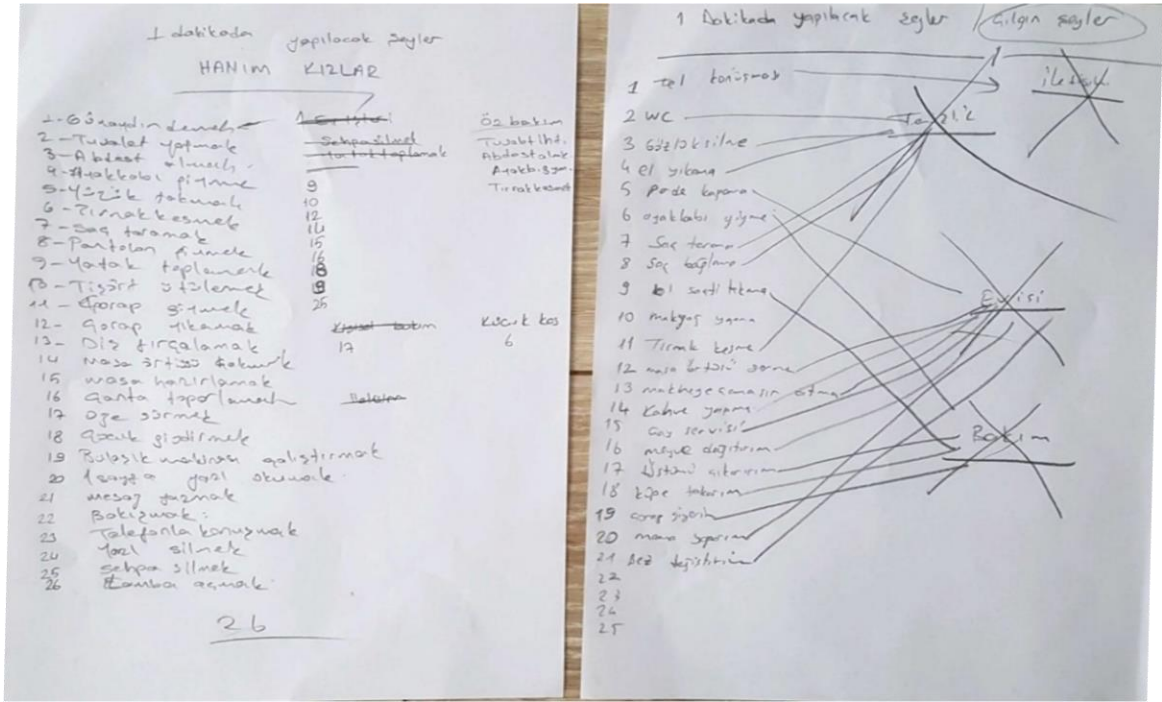 1 dakikada yapılacak şeyler
HANIM KIZLAR
1-Günaydın demek
2-Tuvalet yapmak
3-Abdest almak
4-Ayakkabı giyme
5-Yüzük takmak
6-Tırnak kesmek
7-Saç taramak
8-Pantolon giymek
9-Yatak toplamak
10-Tişört ütülemek
11-Çorap giymek
12-Çorap yıkamak
13-Diş fırçalamak
14 Masa örtüsü
15 masa hazırlamak
16 Çanta toparlamak
17 Oje sürmek
18 Çocuk giydirmek
19 Bulaşık makinası çalıştırmak
20 1 sayfa yazı okumak.
21 mesaj yazmak
22 Bakışmak.
23 Telefonla konuşmak
24 Yazı silmek
25 Sehpa silmek
26 Lamba açmak
26
1 Ev işleri
Sehpa silmek
Yatak toplamak
9
10
12
14
15
16
18
19
25
Kişisel bakım
17
Öz bakım
Tuvalet iht.
Abdest almak
Ayakkabı giy.
Tırnak kesmek
Küçük kas
6
1 Dakikada yapılacak şeyler / Çılgın şeyler
1 tel konuşması
2 WC
3 Gözlük silme
4 el yıkama
5 Perde kapama
6 ayakkabı giyme
7 Saç tarama
8 Saç bağlama
9 kol saati takma
10 makyaj yapma
11 Tırnak kesme
12 masa örtüsü serme
13 makineye çamaşır atma
14 Kahve yapma
15 Çay servisi
16 meyve dağıtırım
17 Üstümü çıkarırım
18 küpe takarım
19 çorap giyerim
20 masa yaparım
21 Bez değiştiririm
22
23
24
25
1
iletişim
Temizlik
Ev işi
Bakım